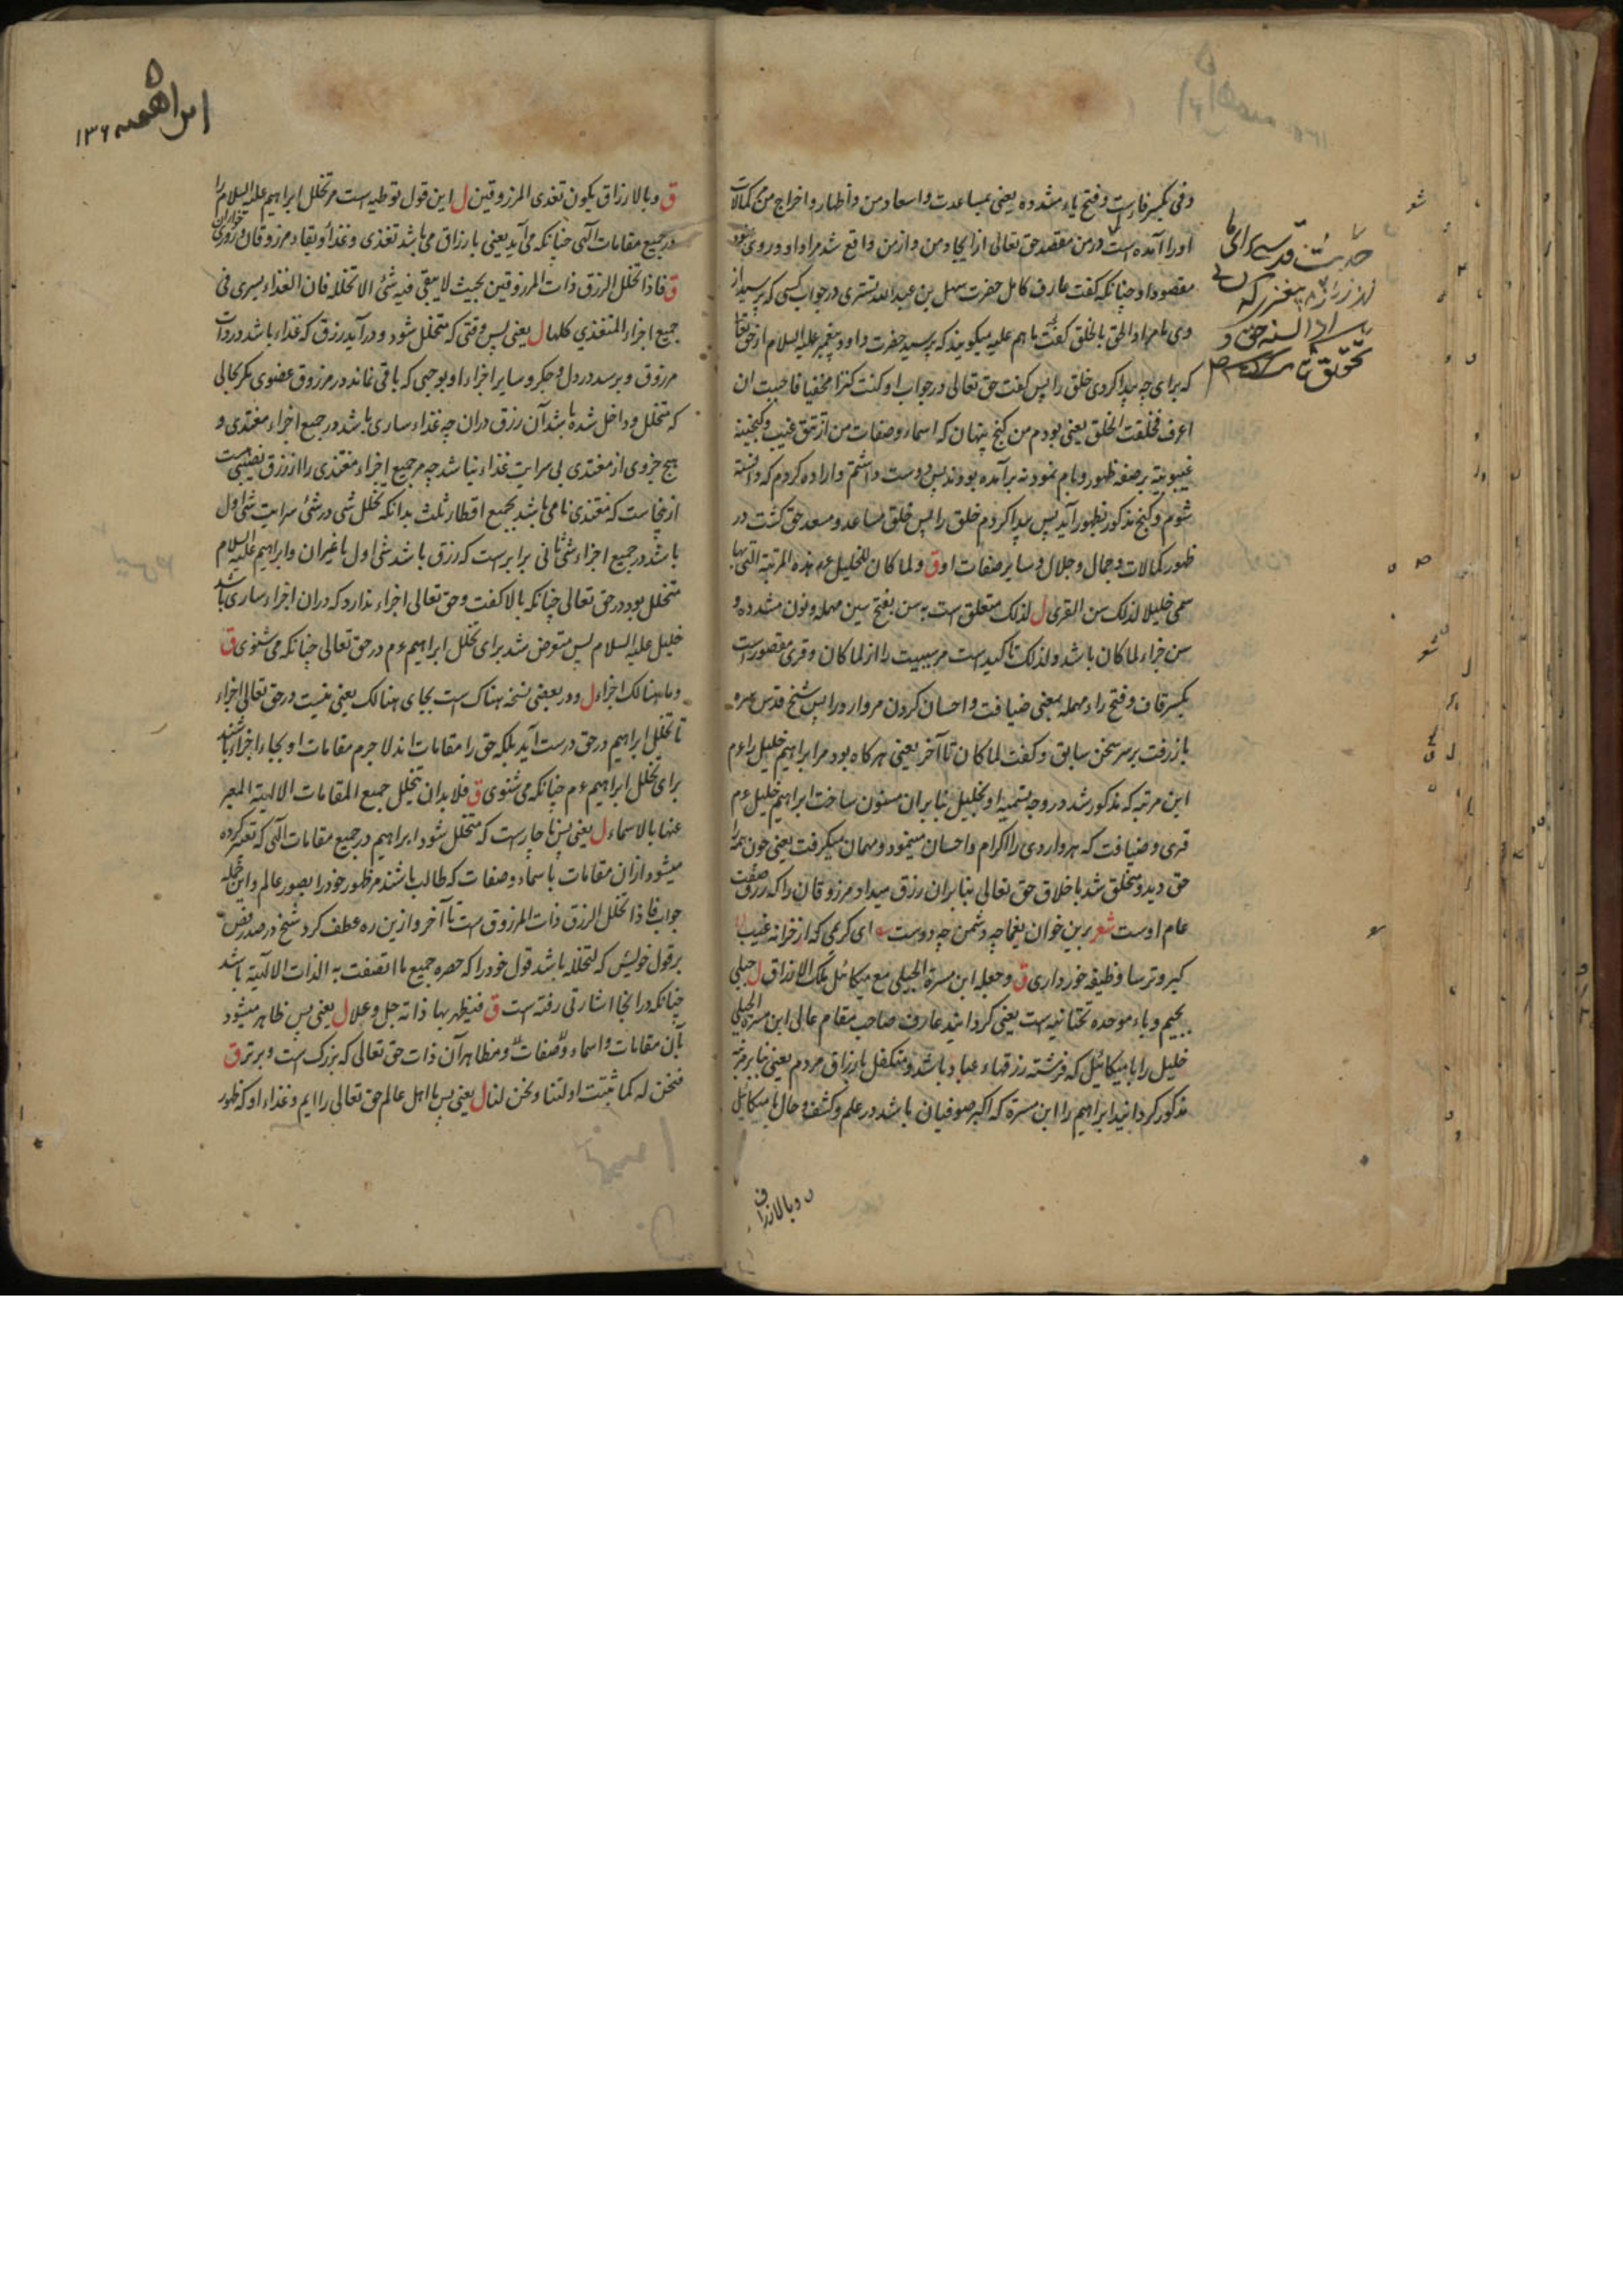 وفی بکسر فاء است و فتح یاء مشدده یعنی بمساعدت و اسعاد من و اظهار و اخراج من کمالات
او را آمده است در من مقصد حق تعالی از ایجاد من و از من واقع شد مراد او و روی نمود
مقصود او چنانکه گفت عارف کامل حضرت سهل بن عبدالله تستری در جواب کسی که پرسید از
وی ما مراد الحق بالخلق گفت ما هم علیه میگویند که پرسید حضرت داود پیغمبر علیه السلام از حق تعا
که برای چه پیدا کردی خلق را پس گفت حق تعالی در جواب او کنت کنزا مخفیا فاحببت ان
اعرف فخلقت الخلق یعنی بودم من گنج پنهان که اسماء و صفات من از تتق غیب و گنجینه
غیبوبیة بر صفه ظهور و بام نمود نه برآمده بودند پس دوست داشتم و اراده کردم که دانسته
شوم و گنج مذکور بظهور آید پس پیدا کردم خلق را پس خلق مساعد و مسعد حق گشت در
ظهور کمالات و جمال و جلال و سایر صفات او ق ولما کان للخلیل عم هذه المرتبة التی بها
سمی خلیلا لذلک سن القری ل لذلک متعلق است به سن بفتح سین مهمله و نون مشدده و
سن جزاء لما کان باشد و لذلک تاکید است مر سببیت را از لما کان و قری مقصور است
بکسر قاف و فتح راء مهمله بمعنی ضیافت و احسان کردن مر وارد را پس شیخ قدس سره
باز رفت بر سر سخن سابق و گفت لما کان تا آخر یعنی هرگاه بود مر ابراهیم خلیل را عم
این مرتبه که مذکور شد در وجه تسمیه او بخلیل بنا بران مسنون ساخت ابراهیم خلیل عم
قری و ضیافت که هر واردی را اکرام و احسان مینمود و مهمان میگرفت یعنی چون همه را
حق دید و متخلق شد باخلاق حق تعالی بنابران رزق میداد مرزوقان را که رزق صفت
عام اوست شعر برین خوان یغما چه دشمن چه دوست ای کریمی که از خزانه غیب
گبر و ترسا وظیفه خور داری ق وجعله ابن مسرة الجبلی مع میکائیل ملک الارزاق ل جبلی
بجیم و باء موحده تحتانیه است یعنی گردانید عارف صاحب مقام عالی ابن مسرة الجبلی
خلیل را با میکائیل که فرشته رزقهاء عباد باشد و متکفل بارزاق مردم یعنی بنابر مرتبه
مذکور گردانید ابراهیم را ابن مسرة که اکبر صوفیان باشد در علم و کشف و حال با میکائیل
و بالارزاق
ابراهیمیه ۱۳۶
ق و بالارزاق یکون تغذی المرزوقین ل این قول توطیه است مر تخلل ابراهیم علیه السلام را
در جمیع مقامات الهی چنانکه می آید یعنی بارزاق می باشد تغذی و غذاء و بقاء مرزوقان و روزی خواران
ق فاذا تخلل الرزق ذات المرزوقین بحیث لا یبقی فیه شئ الا تخلله فان الغذاء یسری فی
جمیع اجزاء المتغذی کلها ل یعنی پس وقتی که متخلل شود و درآید رزق که غذاء باشد در ذات
مرزوق و برسد در دل و جگر و سایر اجزاء او بوجهی که باقی نماند در مرزوق عضوی مگر بحالی
که متخلل و داخل شده باشد آن رزق دران چه غذاء ساری باشد در جمیع اجزاء مغتذی و
هیچ جزوی از مغتذی بی سرایت غذاء نباشد چه مر جمیع اجزاء مغتذی را از رزق نصیبی است
ازینجاست که مغتذی نامی باشد بجمیع اقطار ثلث بدانکه تخلل شی در شئ سرایت شی اول
باشد در جمیع اجزاء شئ ثانی برابر است که رزق باشد شی اول یا غیر ان و ابراهیم علیه السلام
متخلل بود در حق تعالی چنانکه بالا گفت و حق تعالی اجزاء ندارد که دران اجزاء ساری باشد
خلیل علیه السلام پس متعرض شد برای تخلل ابراهیم عم در حق تعالی چنانکه می شنوی ق
وما هنالک اجزاء ل و در بعضی نسخه هناک است بجای هنالک یعنی نیست در حق تعالی اجزاء
تا تخلل ابراهیم در حق درست آید بلکه حق را مقامات اند لا جرم مقامات او بجاء اجزاء باشند
برای تخلل ابراهیم عم چنانکه می شنوی ق فلا بد ان یتخلل جمیع المقامات الالهیة المعبر
عنها بالاسماء ل یعنی پس ناچار است که متخلل شود ابراهیم در جمیع مقامات الهی که تعبیر کرده
میشود ازان مقامات باسماء و صفات که طالب باشند مر ظهور خود را بصور عالم و این جمله
جواب فاذا تخلل الرزق ذات المرزوق است تا آخر و ازین ره عطف کرد شیخ در صدر فص
بر قول خویش که لتخلله باشد قول خود را که حصره جمیع ما اتصفت به الذات الالهیة باشد
چنانکه در انجا اشارتی رفته است ق فیظهر بها ذاته جل و علا ل یعنی پس ظاهر میشود
بآن مقامات و اسماء و صفات و مظاهر آن ذات حق تعالی که بزرگ است و برتر ق
فنحن له کما ثبتت ادلتنا ونحن لنا ل یعنی پس ما اهل عالم حق تعالی را ایم و غذاء او که ظهور